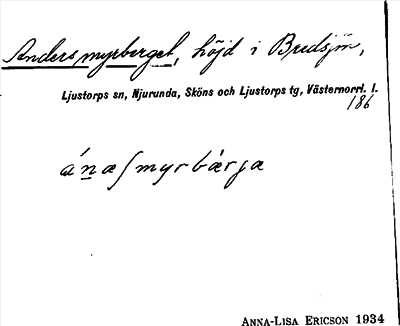 Andersmyrberget, höjd i Bredsjön,
Ljustorps sn, Njurunda, Sköns och Ljustorps tg, Västernorrl. l.
186
ánæʃmyrbærjæ
ANNA-LISA ERICSON 1934